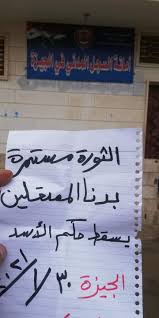 أمانة السجل المدني في الجيزة
الثورة مستمرة
بدنا المعتقلين
يسقط حكم الأسد
الجيزة ٣٠/١/٢٠٢١